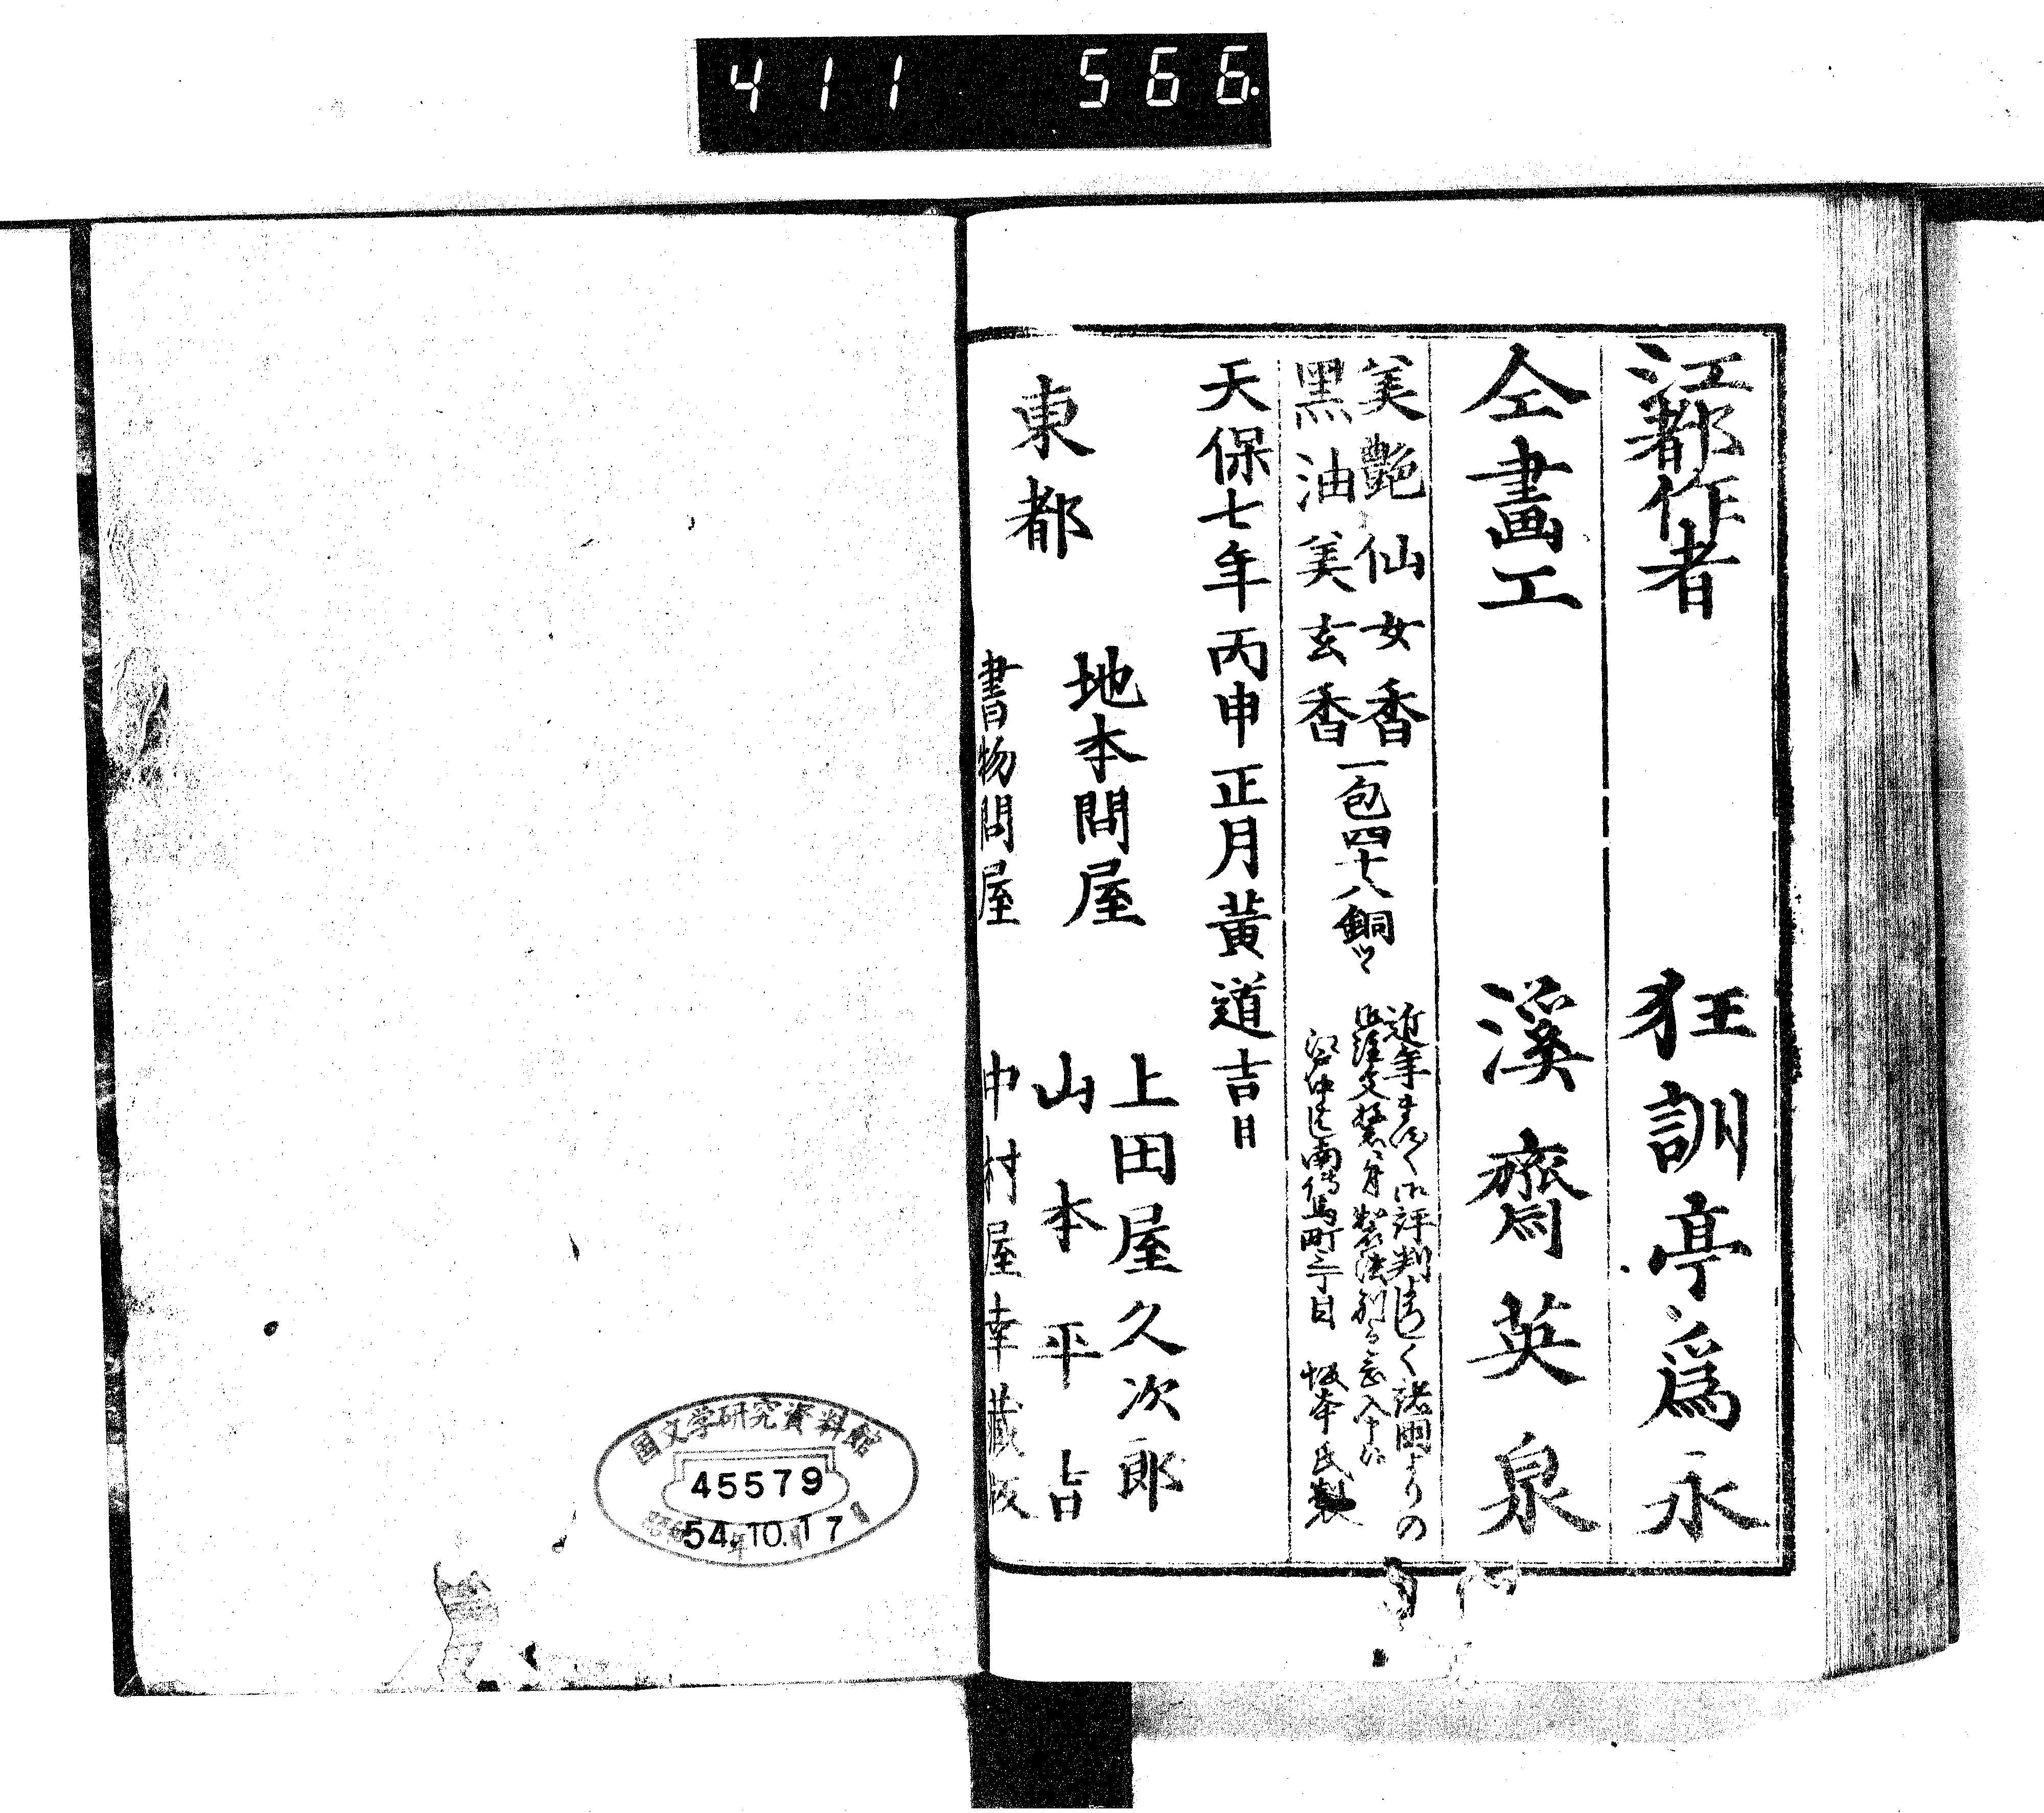 411 566.
江都作者 狂訓亭爲永
仝畫工 溪齋英泉
美艷仙女香
黒油美玄香
一包四十八銅ヅヽ
近年まは〱御評判よろしく諸國よりの
江戸中橋南傳馬町三丁目 坂本氏製
天保七年丙申正月黄道吉日
東都
地本問屋 上田屋久次郎
山本平吉
書物問屋 中村屋幸藏板
国文学研究資料館
45579
昭和54年10月17日